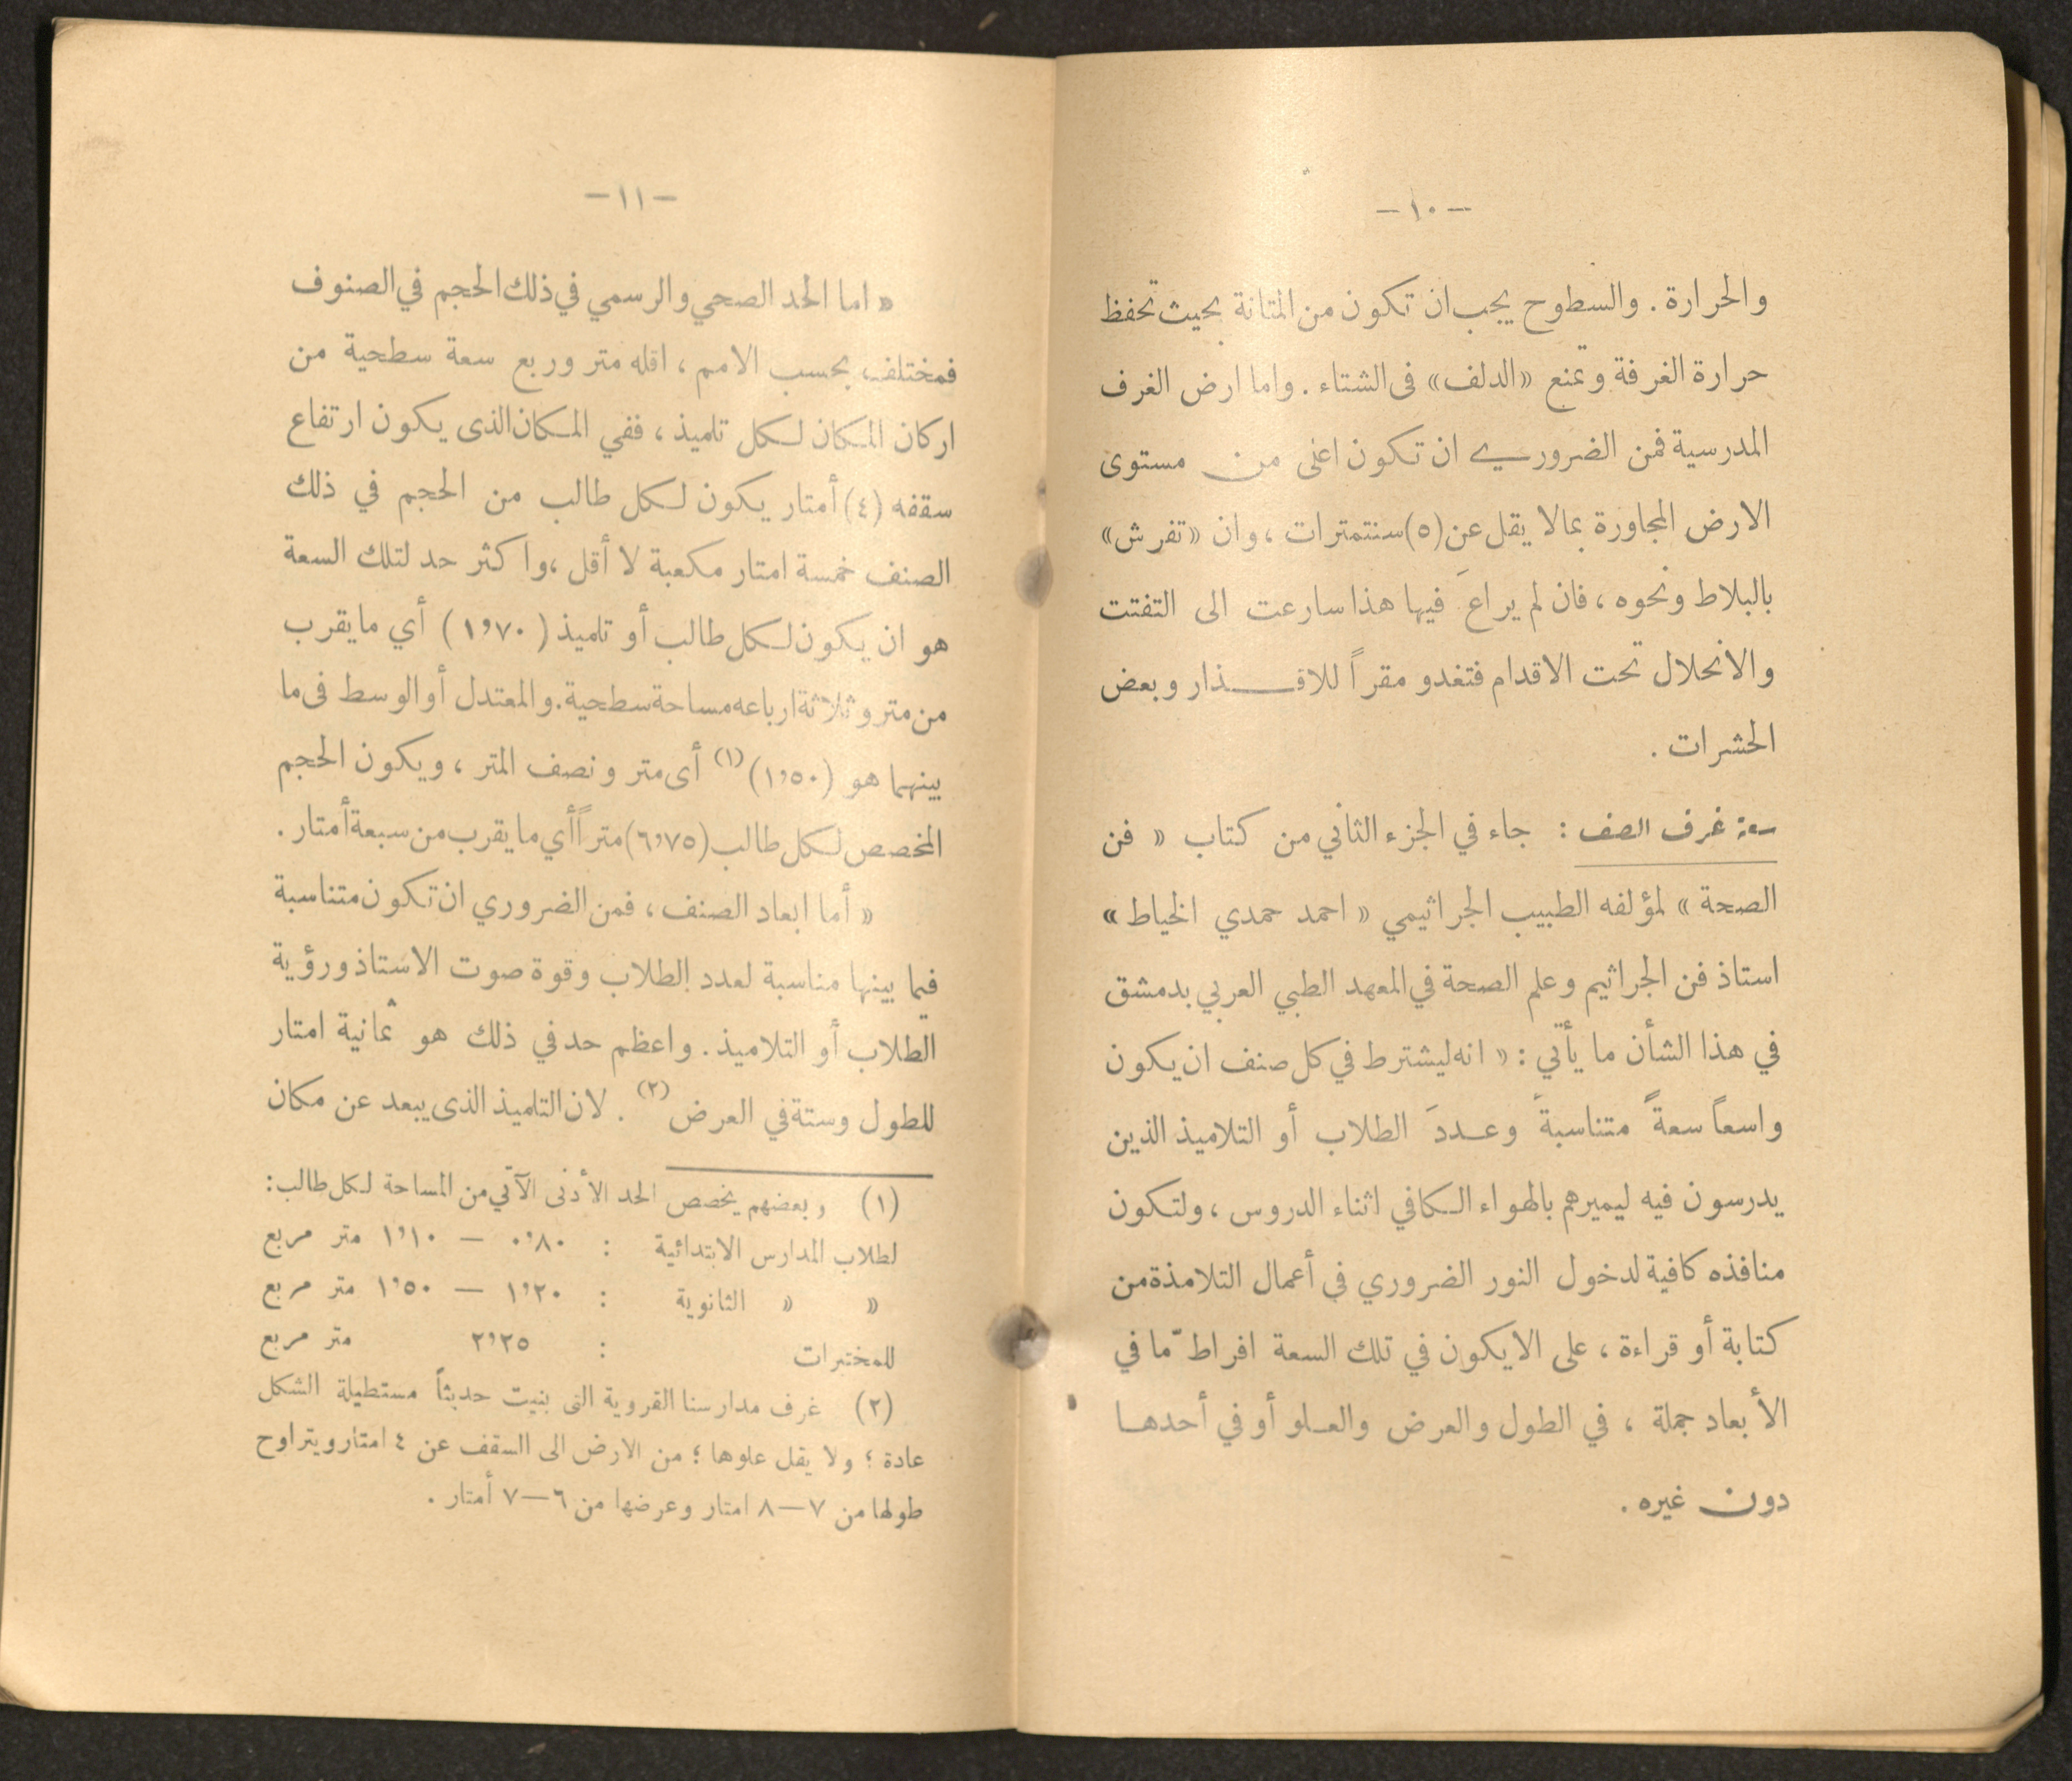 - ١٠ -
والحرارة . والسطوح يجب ان تكون من المتانة بحيث تحفظ
حرارة الغرفة وتمنع «الدلف» فى الشتاء . واما ارض الغرف
المدرسية فمن الضروري ان تكون اعلى من مستوى
الارض المجاورة بمالا يقل عن (٥) سنتمترات ، وان «تفرش»
بالبلاط ونحوه ، فان لم يراعَ فيها هذا سارعت الى التفتت
والانحلال تحت الاقدام فتغدو مقراً للاقـذار وبعض
الحشرات .
سعة غرف الصف : جاء في الجزء الثاني من كتاب « فن
الصحة » لمؤلفه الطبيب الجراثيمي « احمد حمدي الخياط »
استاذ فن الجراثيم وعلم الصحة في المعهد الطبي العربي بدمشق
في هذا الشأن ما يأتي : « انه ليشترط في كل صنف ان يكون
واسعاً سعةً متناسبةً وعـددَ الطلاب أو التلاميذ الذين
يدرسون فيه ليميرهم بالهواء الكافي اثناء الدروس ، ولتكون
منافذه كافية لدخول النور الضروري في أعمال التلامذة من
كتابة أو قراءة ، على الا يكون في تلك السعة افراط ّما في
الأبعاد جملة ، في الطول والعرض والعـلو أو في أحدهـا
دون غيره .
- ١١ -
« اما الحد الصحي والرسمي في ذلك الحجم في الصنوف
فمختلف بحسب الامم ، اقله متر وربع سعة سطحية من
اركان المكان لكل تلميذ ، ففي المكان الذى يكون ارتفاع
سقفه (٤) أمتار يكون لكل طالب من الحجم في ذلك
الصنف خمسة امتار مكعبة لا أقل ، واكثر حد لتلك السعة
هو ان يكون لكل طالب أو تلميذ ( ١٫٧٠ ) أي ما يقرب
من متر وثلاثة ارباعه مساحة سطحية . والمعتدل أو الوسط فى ما
بينهما هو (١٫٥٠) (١) أى متر ونصف المتر ، ويكون الحجم
المخصص لكل طالب (٦٫٧٥) متراً أي ما يقرب من سبعة أمتار .
« أما ابعاد الصنف ، فمن الضروري ان تكون متناسبة
فيما بينها مناسبة لعدد الطلاب وقوة صوت الاستاذ ورؤية
الطلاب أو التلاميذ . واعظم حد في ذلك هو ثمانية امتار
للطول وستة في العرض (٢) . لان التلميذ الذى يبعد عن مكان
(١) وبعضهم يخصص الحد الأدنى الآتي من المساحة لكل طالب :
لطلاب المدارس الابتدائية : ٠٫٨٠ — ١٫١٠ متر مربع
« « الثانوية : ١٫٢٠ — ١٫٥٠ متر مربع
للمختبرات : ٢٫٢٥ متر مربع
(٢) غرف مدارسنا القروية التى بنيت حديثاً مستطيلة الشكل
عادة ؛ ولا يقل علوها ؛ من الارض الى السقف عن ٤ امتار ويتراوح
طولها من ٧—٨ امتار وعرضها من ٦—٧ أمتار .